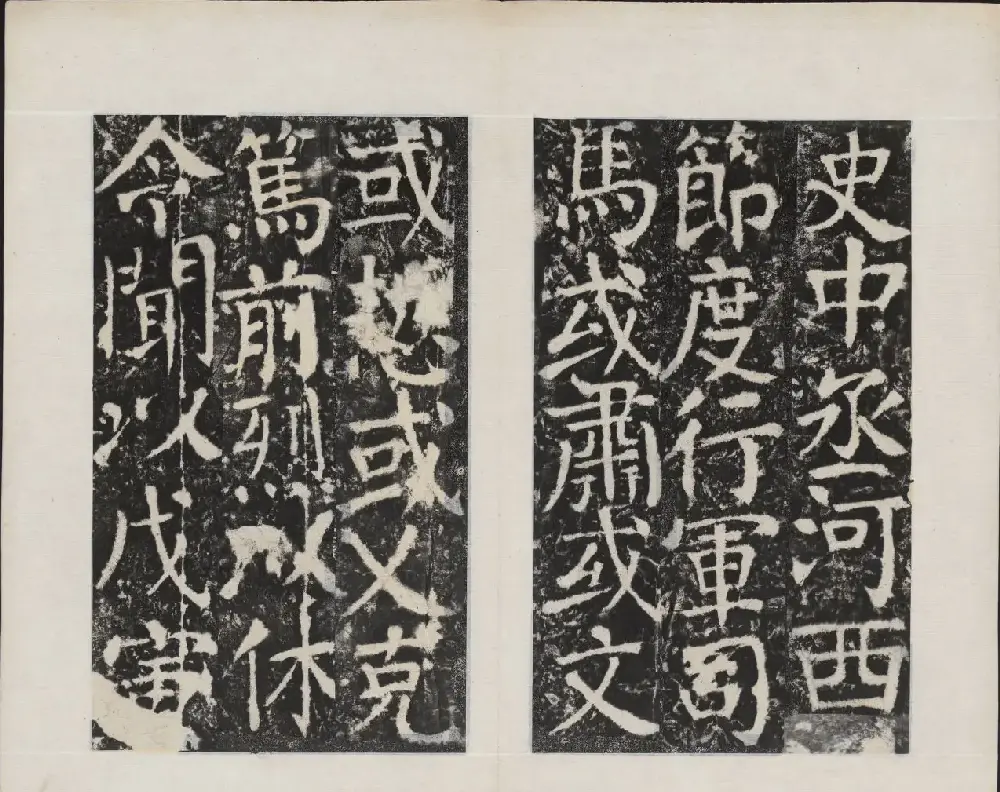 史中丞河西
節度行軍司
馬或肅或文
或悊或乂克
篤前烈以休
令聞以戊寅